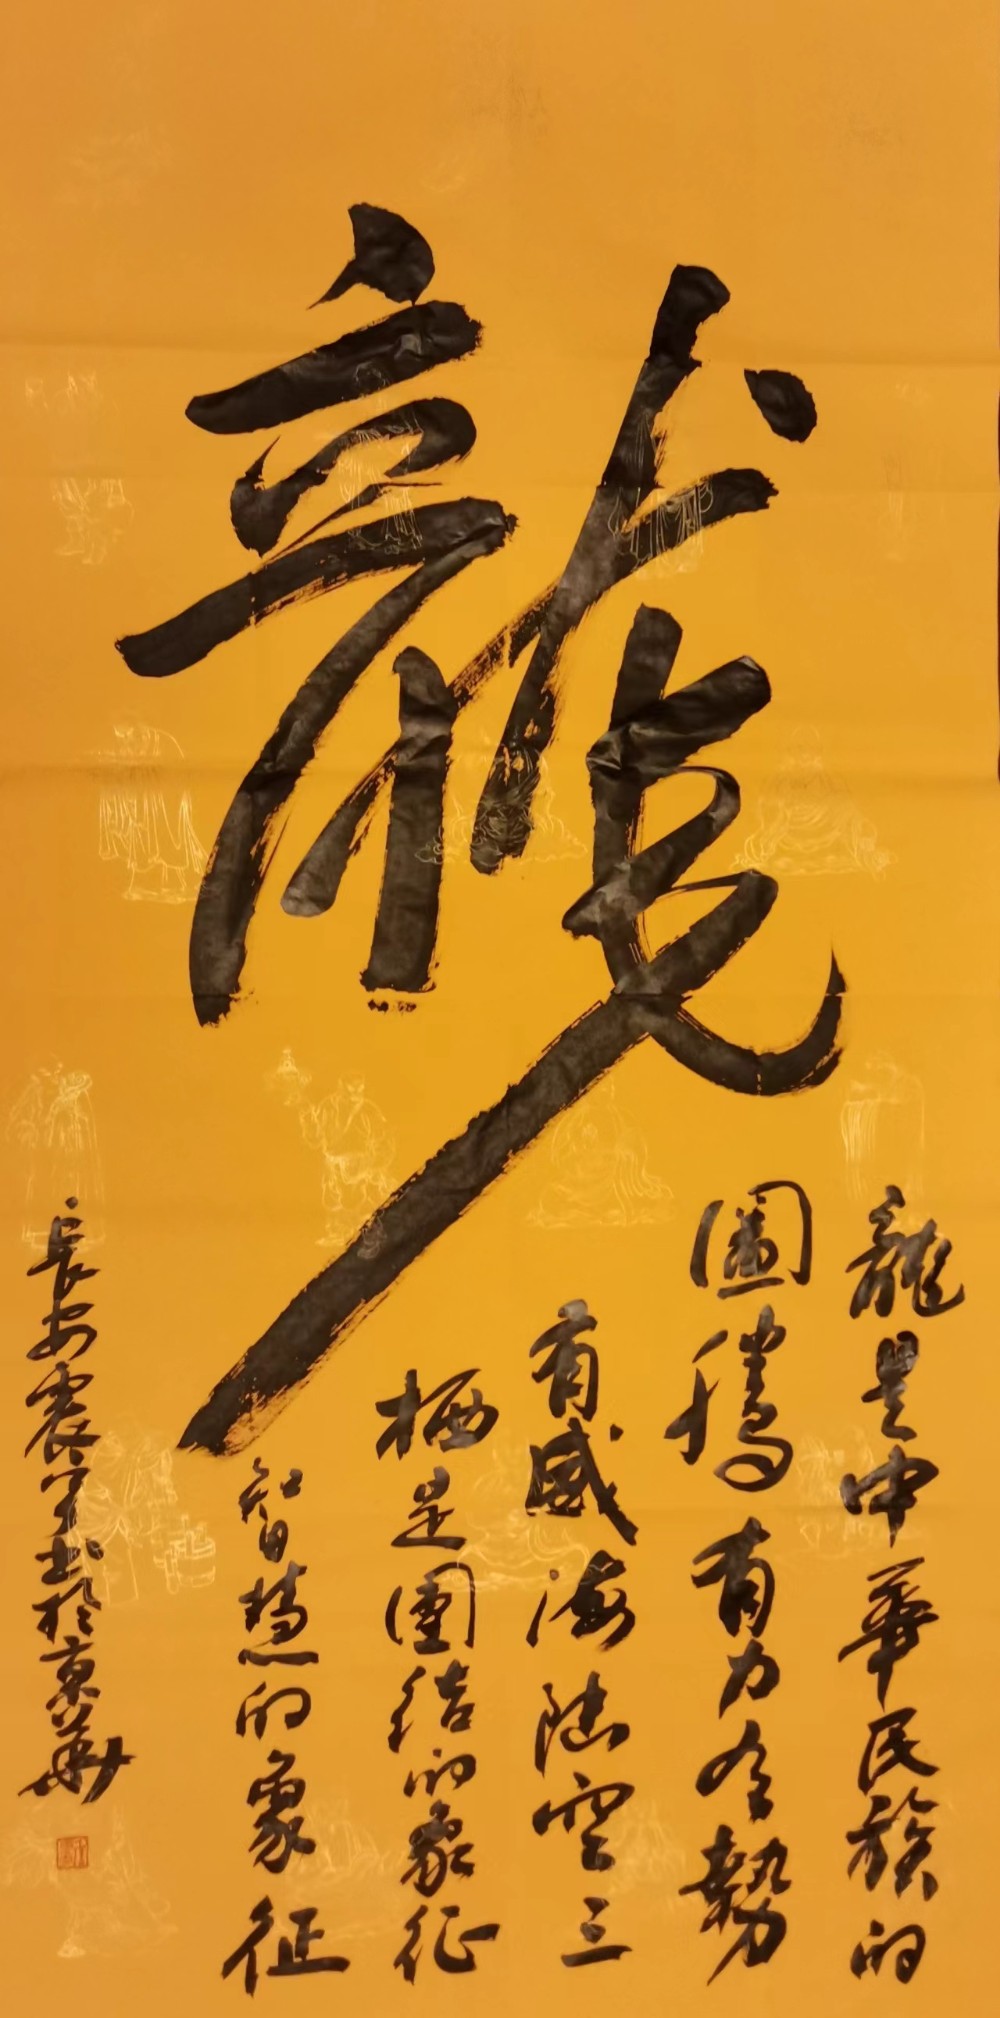 龍
龍是中華民族的
圖騰有力勢
有威海陸空三
栖是團结的象征
智慧的象征
長安震书於京華